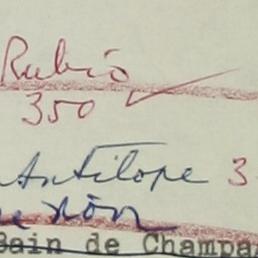 Rubio
350
Antilope 3
Bain de Champa